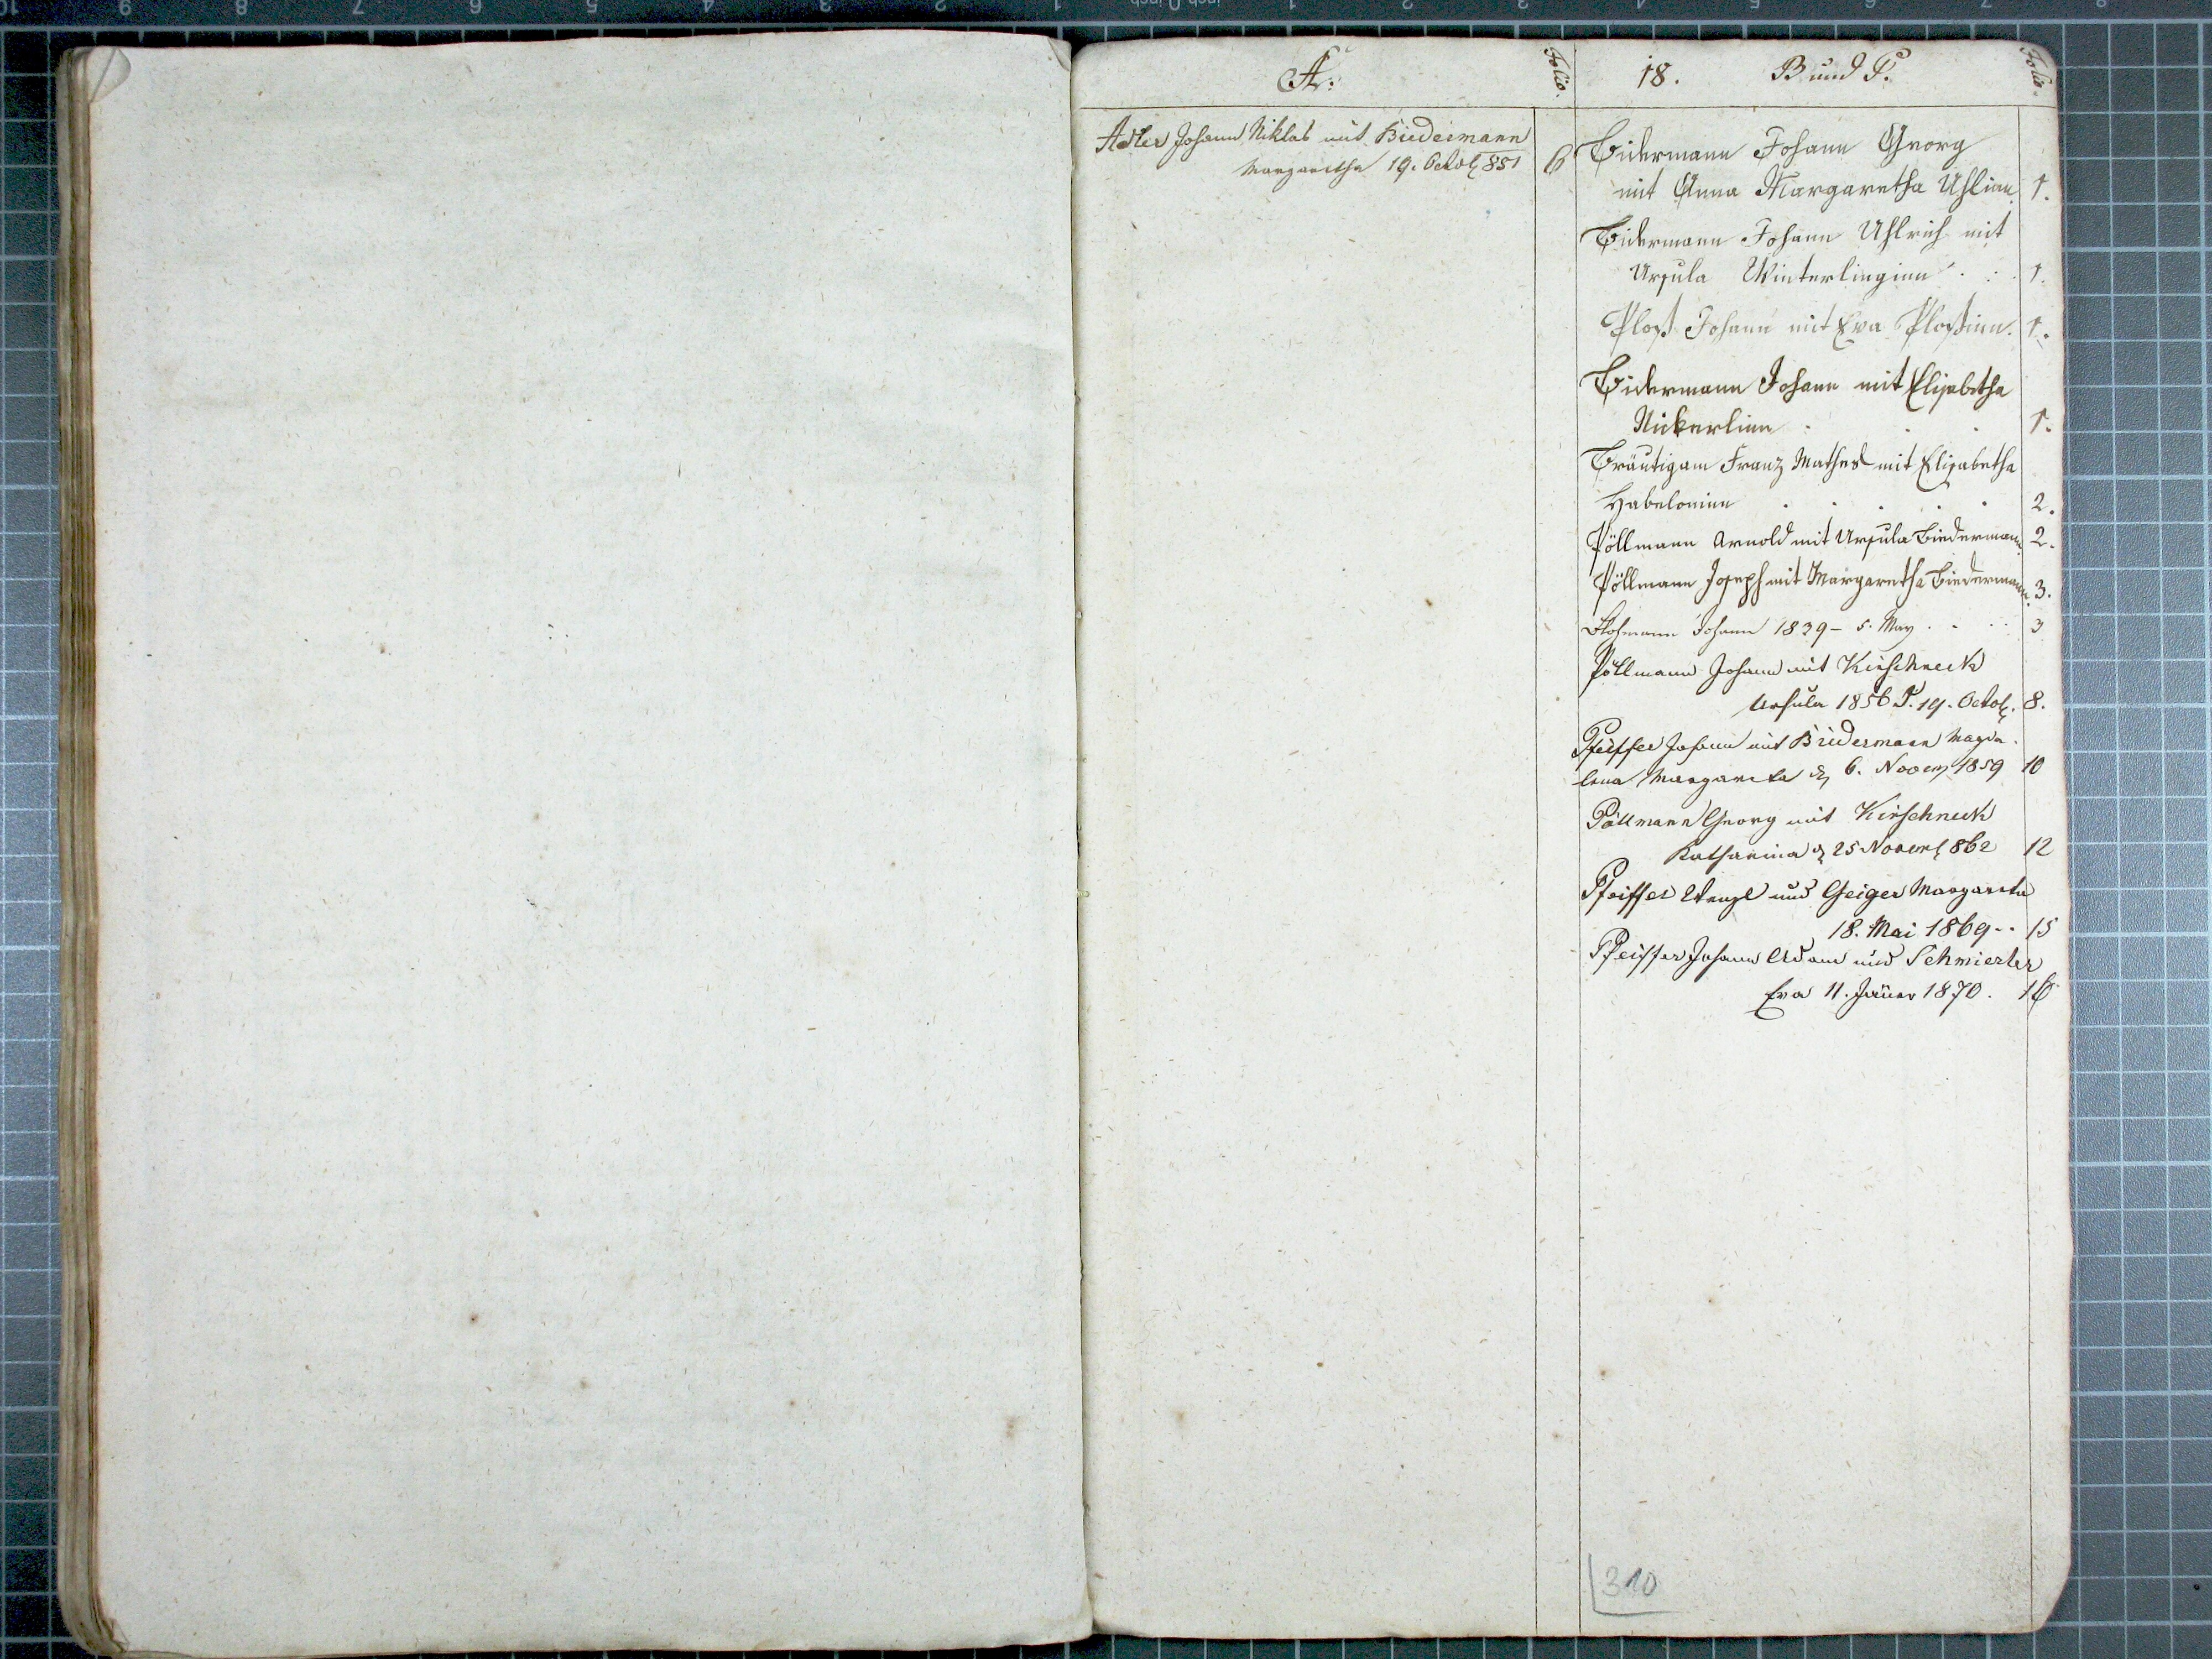 A:
Folio.
Adler Johann Niklas mit Biedermann
Margaretha 19. Octob 851
6
18. B und P.
Folio.
Bidermann Johann Georg
mit Anna Margaretha Uhlinn. 1.
Bidermann Johann Uhlrich mit
Ursula Winterlinginn . . . 1.
Ploß Johann mit Eva Ploßinn. 1.
Bidermann Johann mit Elisabetha
Nickerlinn . . . 1.
Bräutigam Franz Mathes mit Elisabetha
Habeloninn . . . . . 2.
Pöllmann Arnold mit Ursula Biedermann 2.
Pöllmann Joseph mit Margaretha Biedermann. 3.
Johann 1839 – 5. May . . . . 3
Pöllmann Johann mit Kirschneck
Ursula 1856 d. 19. Octob. 8.
Pfeiffer Johann mit Biedermann Magda
lena Margareta 6. Novem 1859 10
Pöllmann Georg mit Kirschneck
Katharina 25 Novemb 862 12
Pfeiffer Wenzl und Geiger Margareta
18. Mai 1869 - - 15
Pfeiffer Johann Adam und Schmierler
Eva 11. Jäner 1870. 16
310
10 9 8 7 6 5 4 3 2 1 inch 0 inch 1 2 3 4 5 6 7 8